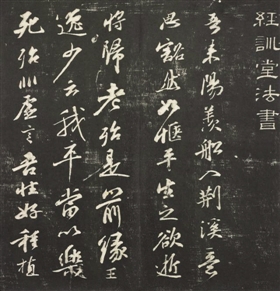 經訓堂法書
吾來陽羨船入荊溪意
思豁然如愜平生之欲逝
將歸老殆是前緣王
逸少云我卒當以樂
死殆非虛言吾性好種植